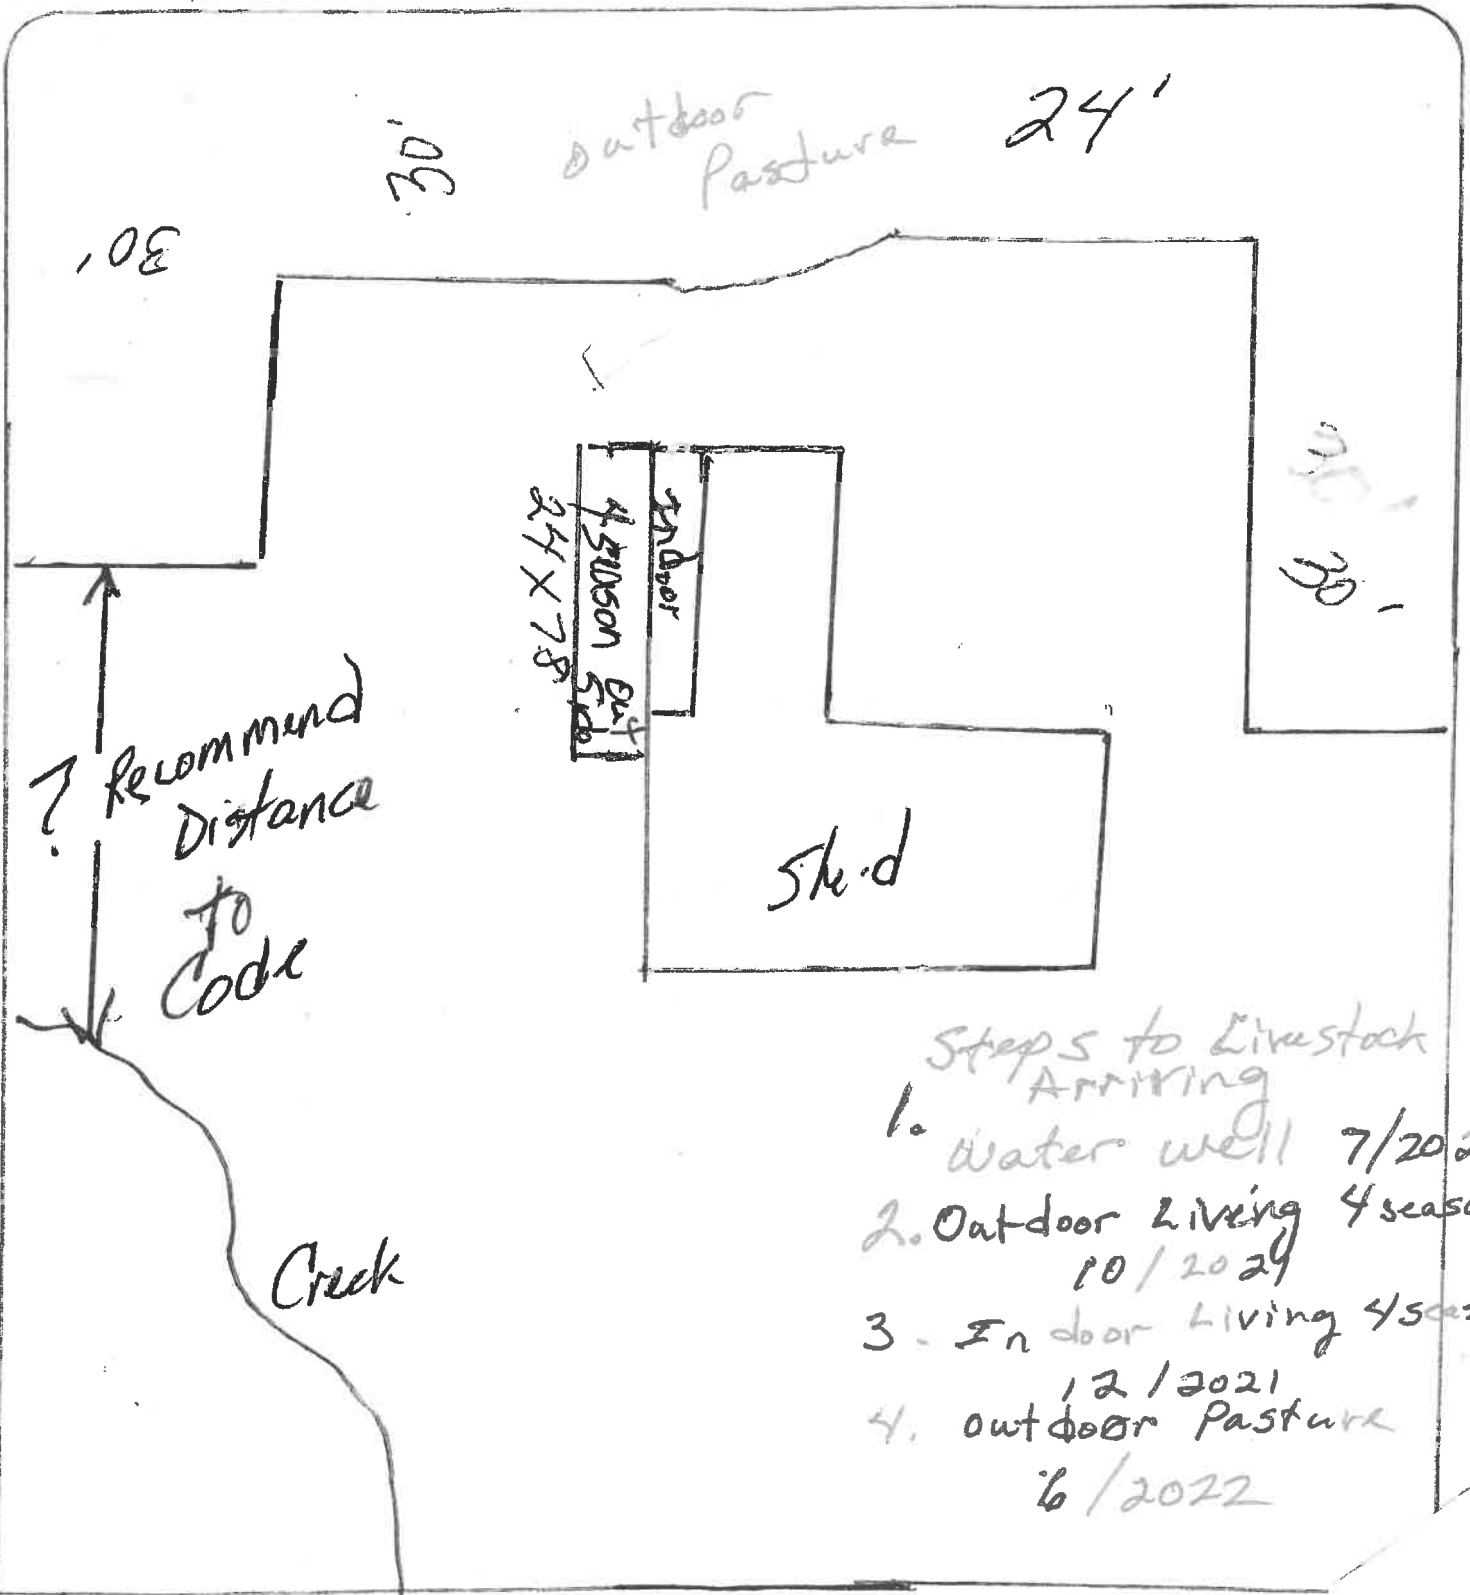 Outdoor
Pasture
24'
30'
30'
30'
30'
Indoor
4 season Out
Side
24 x 78
? Recommend
Distance
to
Code
Shed
Creek
Steps to Livestock
Arriving
1.
Water well 7/202
2. Outdoor Living 4 seaso
10/2021
3. Indoor Living 4 seas
12/2021
4. Outdoor Pasture
6/2022